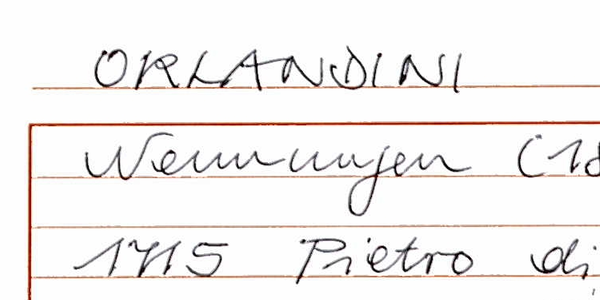 ORLANDINI
Wemmingen (18
1715 Pietro di